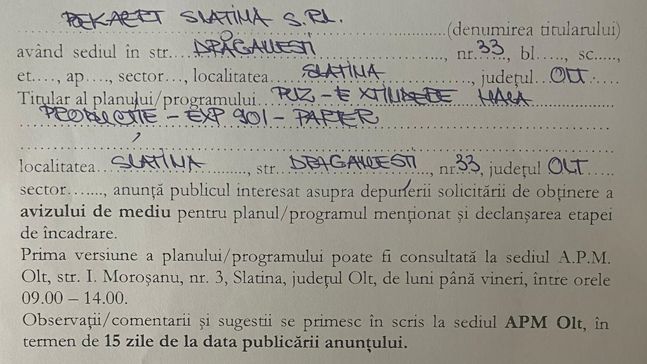 PEKAEET SLATINA S.RL. ..................(denumirea titularului)
având sediul în str....DRĂGĂNEȘTI........................, nr.33.., bl....., sc.....,
et...., ap....., sector..., localitatea......SLATINA................, județul..OLT.....
Titular al planului/programului...PUZ - EXTINDERE HALA
PRODUCȚIE - EXP 901 - PAPER
localitatea...SLATINA.........., str...DRAGANESTI..., nr33, județul OLT.....
sector......., anunță publicul interesat asupra depunerii solicitării de obținere a
avizului de mediu pentru planul/programul menționat și declanșarea etapei
de încadrare.
Prima versiune a planului/programului poate fi consultată la sediul A.P.M.
Olt, str. I. Moroșanu, nr. 3, Slatina, județul Olt, de luni până vineri, între orele
09.00 – 14.00.
Observații/comentarii și sugestii se primesc în scris la sediul APM Olt, în
termen de 15 zile de la data publicării anunțului.